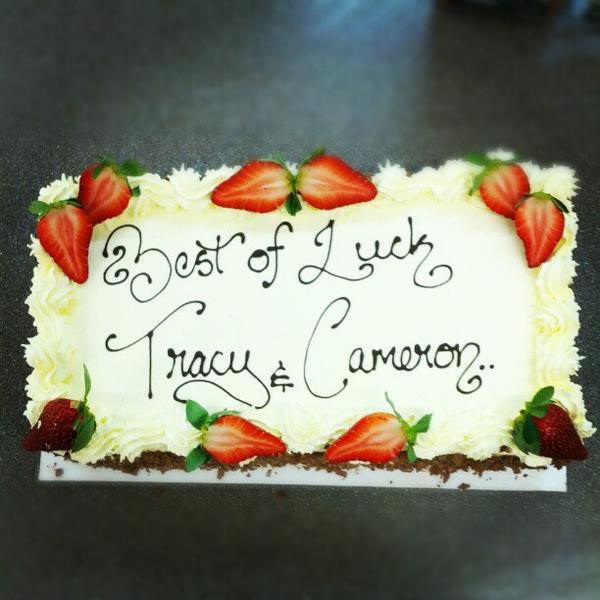 Best of Luck
Tracy & Cameron..